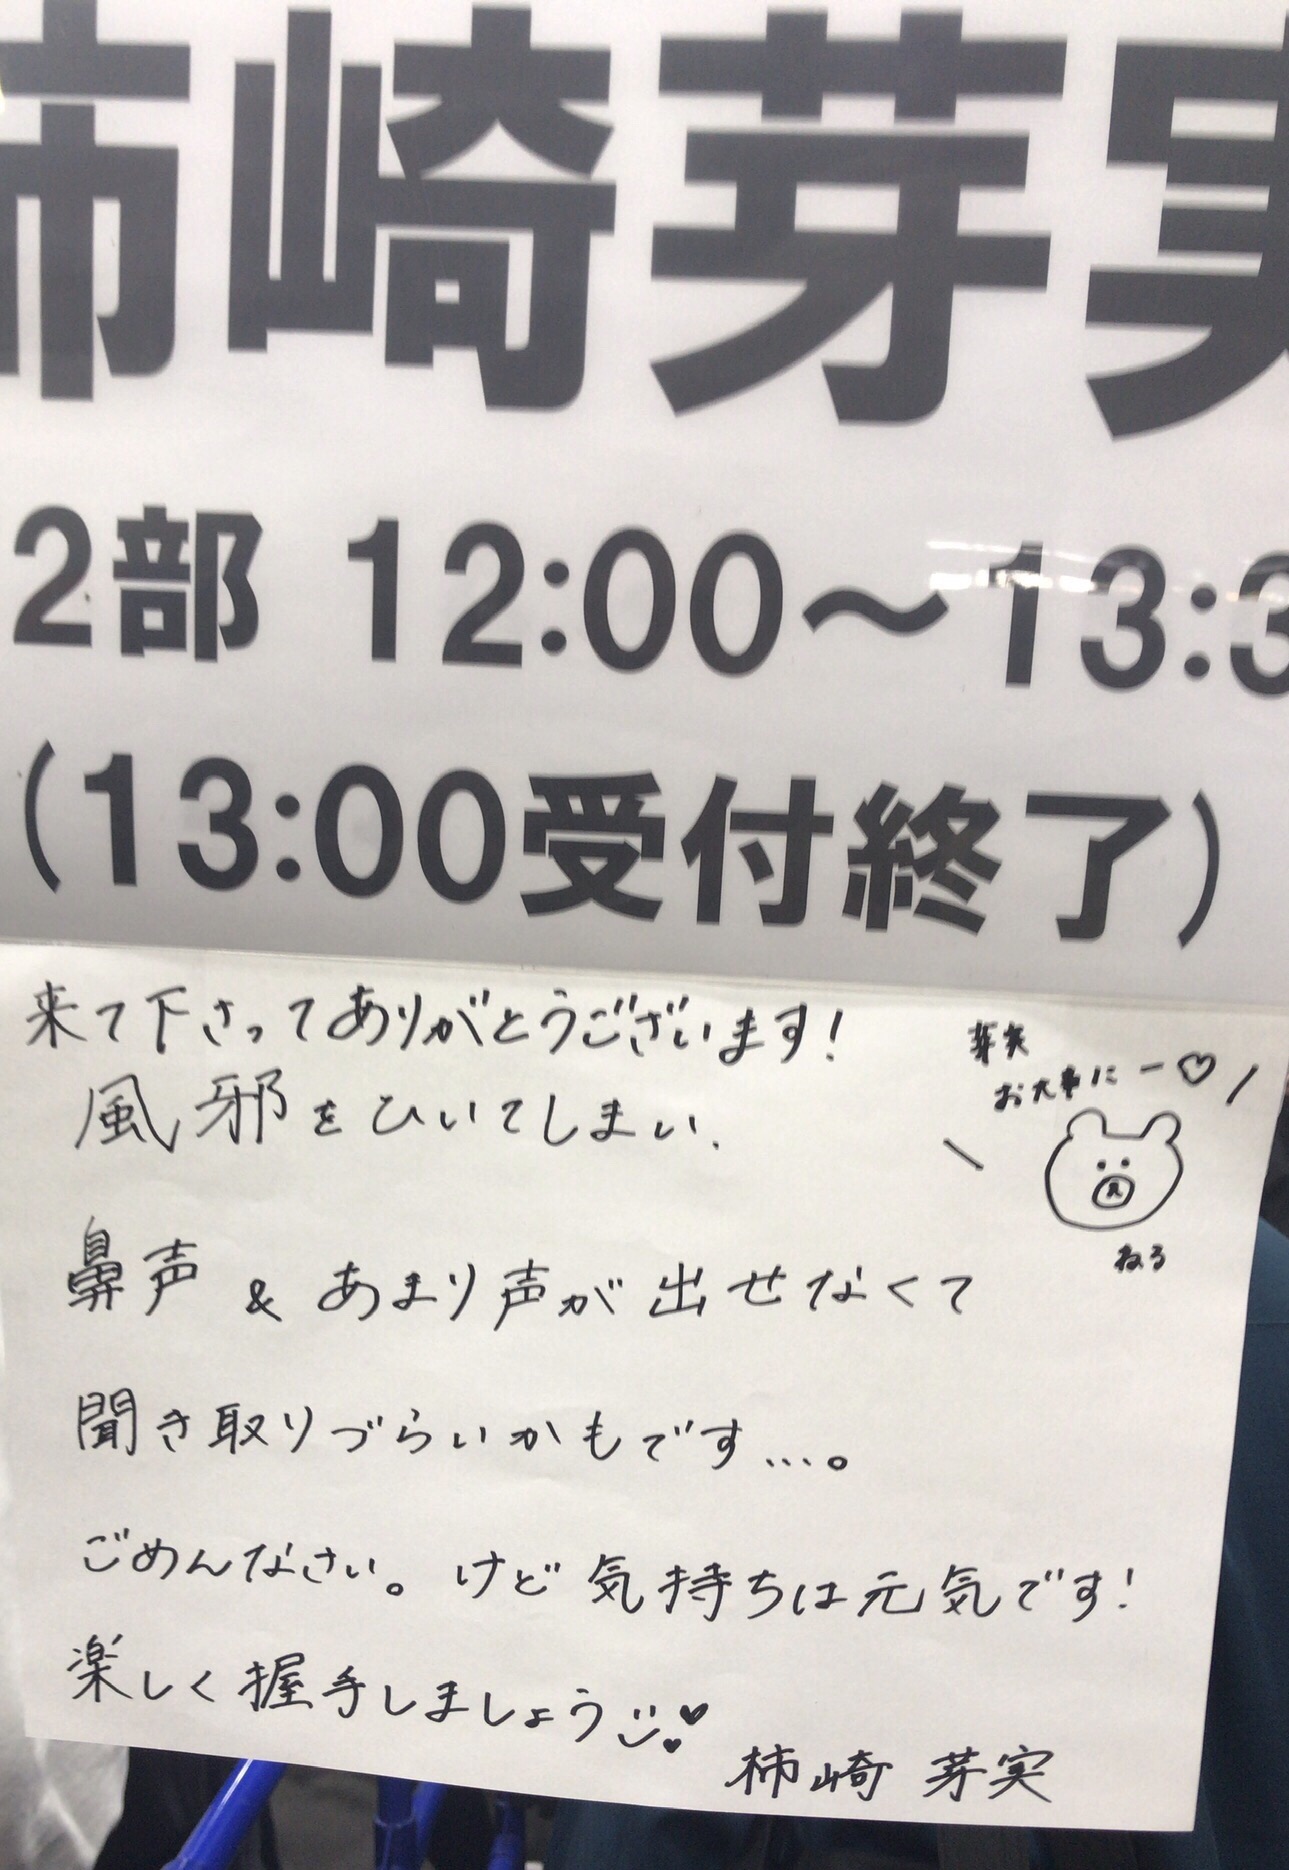 柿崎芽実
2部 12:00〜13:3
(13:00受付終了)
来て下さってありがとうございます!
風邪をひいてしまい、
鼻声 & あまり声が出せなくて
聞き取りづらいかもです…。
ごめんなさい。けど気持ちは元気です!
楽しく握手しましょう
柿崎 芽実
芽実
お大事にー♡
ねる